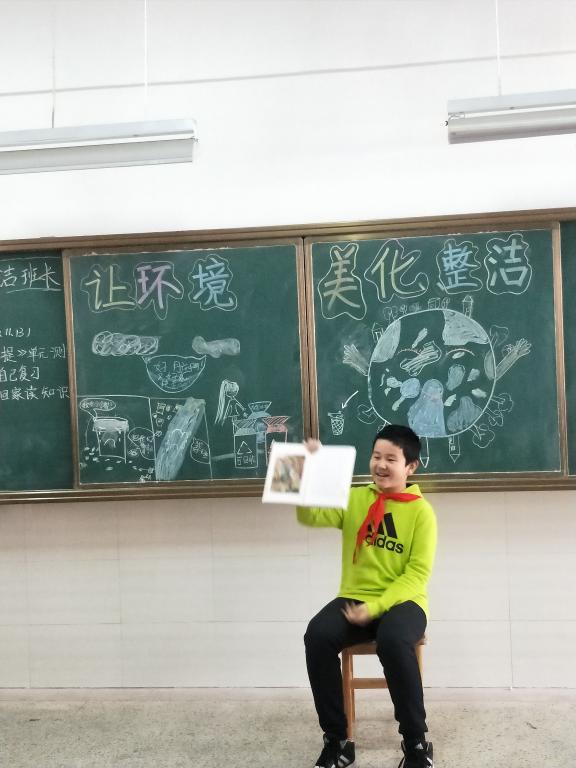 洁班长
让环境
美化整洁
11.13)
提》单元测
自己复习
回家读知识
adidas